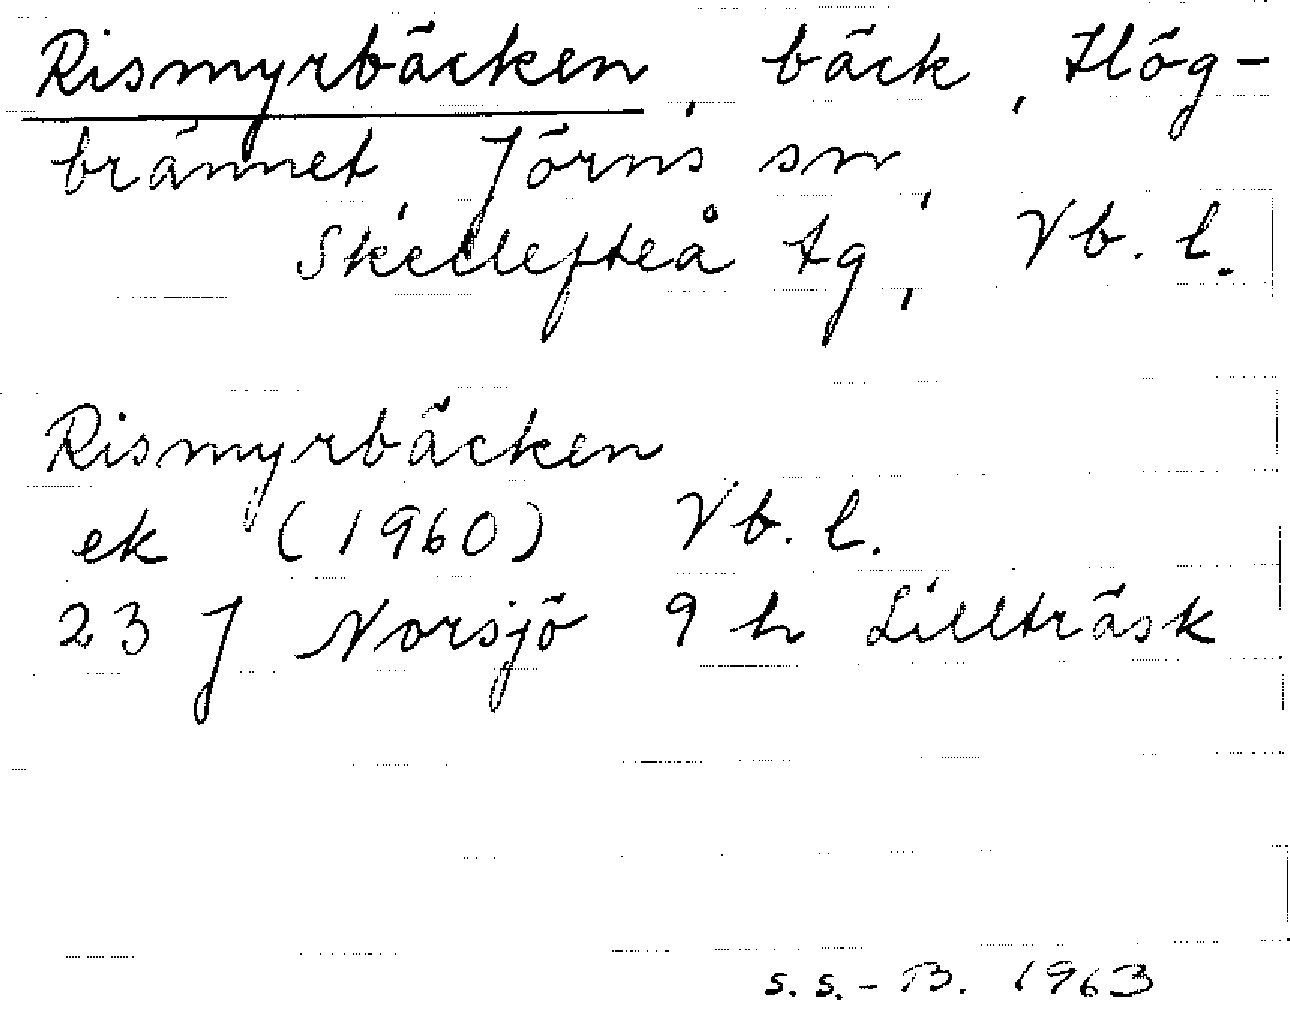 Rismyrbäcken, bäck, Hög-
brännet, Jörns sn,
Skellefteå tg, Vb. l.
Rismyrbäcken
ek (1960) Vb. l.
23 J Norsjö 9 h Lillträsk
s. s. - B. 1963